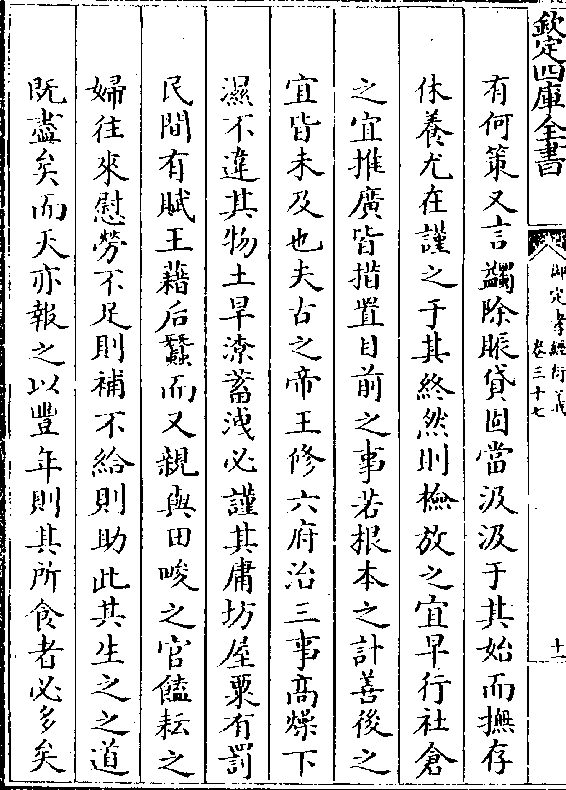 欽定四庫全書
御定孝經衍義
卷三十七
十一
有何策又言蠲除賑貸固當汲汲于其始而撫存
休養尤在謹之于其終然則檢放之宜早行社倉
之宜推廣皆措置目前之事若根本之計善後之
宜皆未及也夫古之帝王修六府治三事高燥下
濕不違其物土旱潦蓄洩必謹其庸坊屋粟有罰
民間有賦王藉后蠶而又親與田畯之官饁耘之
婦往來慰勞不足則補不給則助此其生之之道
既盡矣而天亦報之以豐年則其所食者必多矣